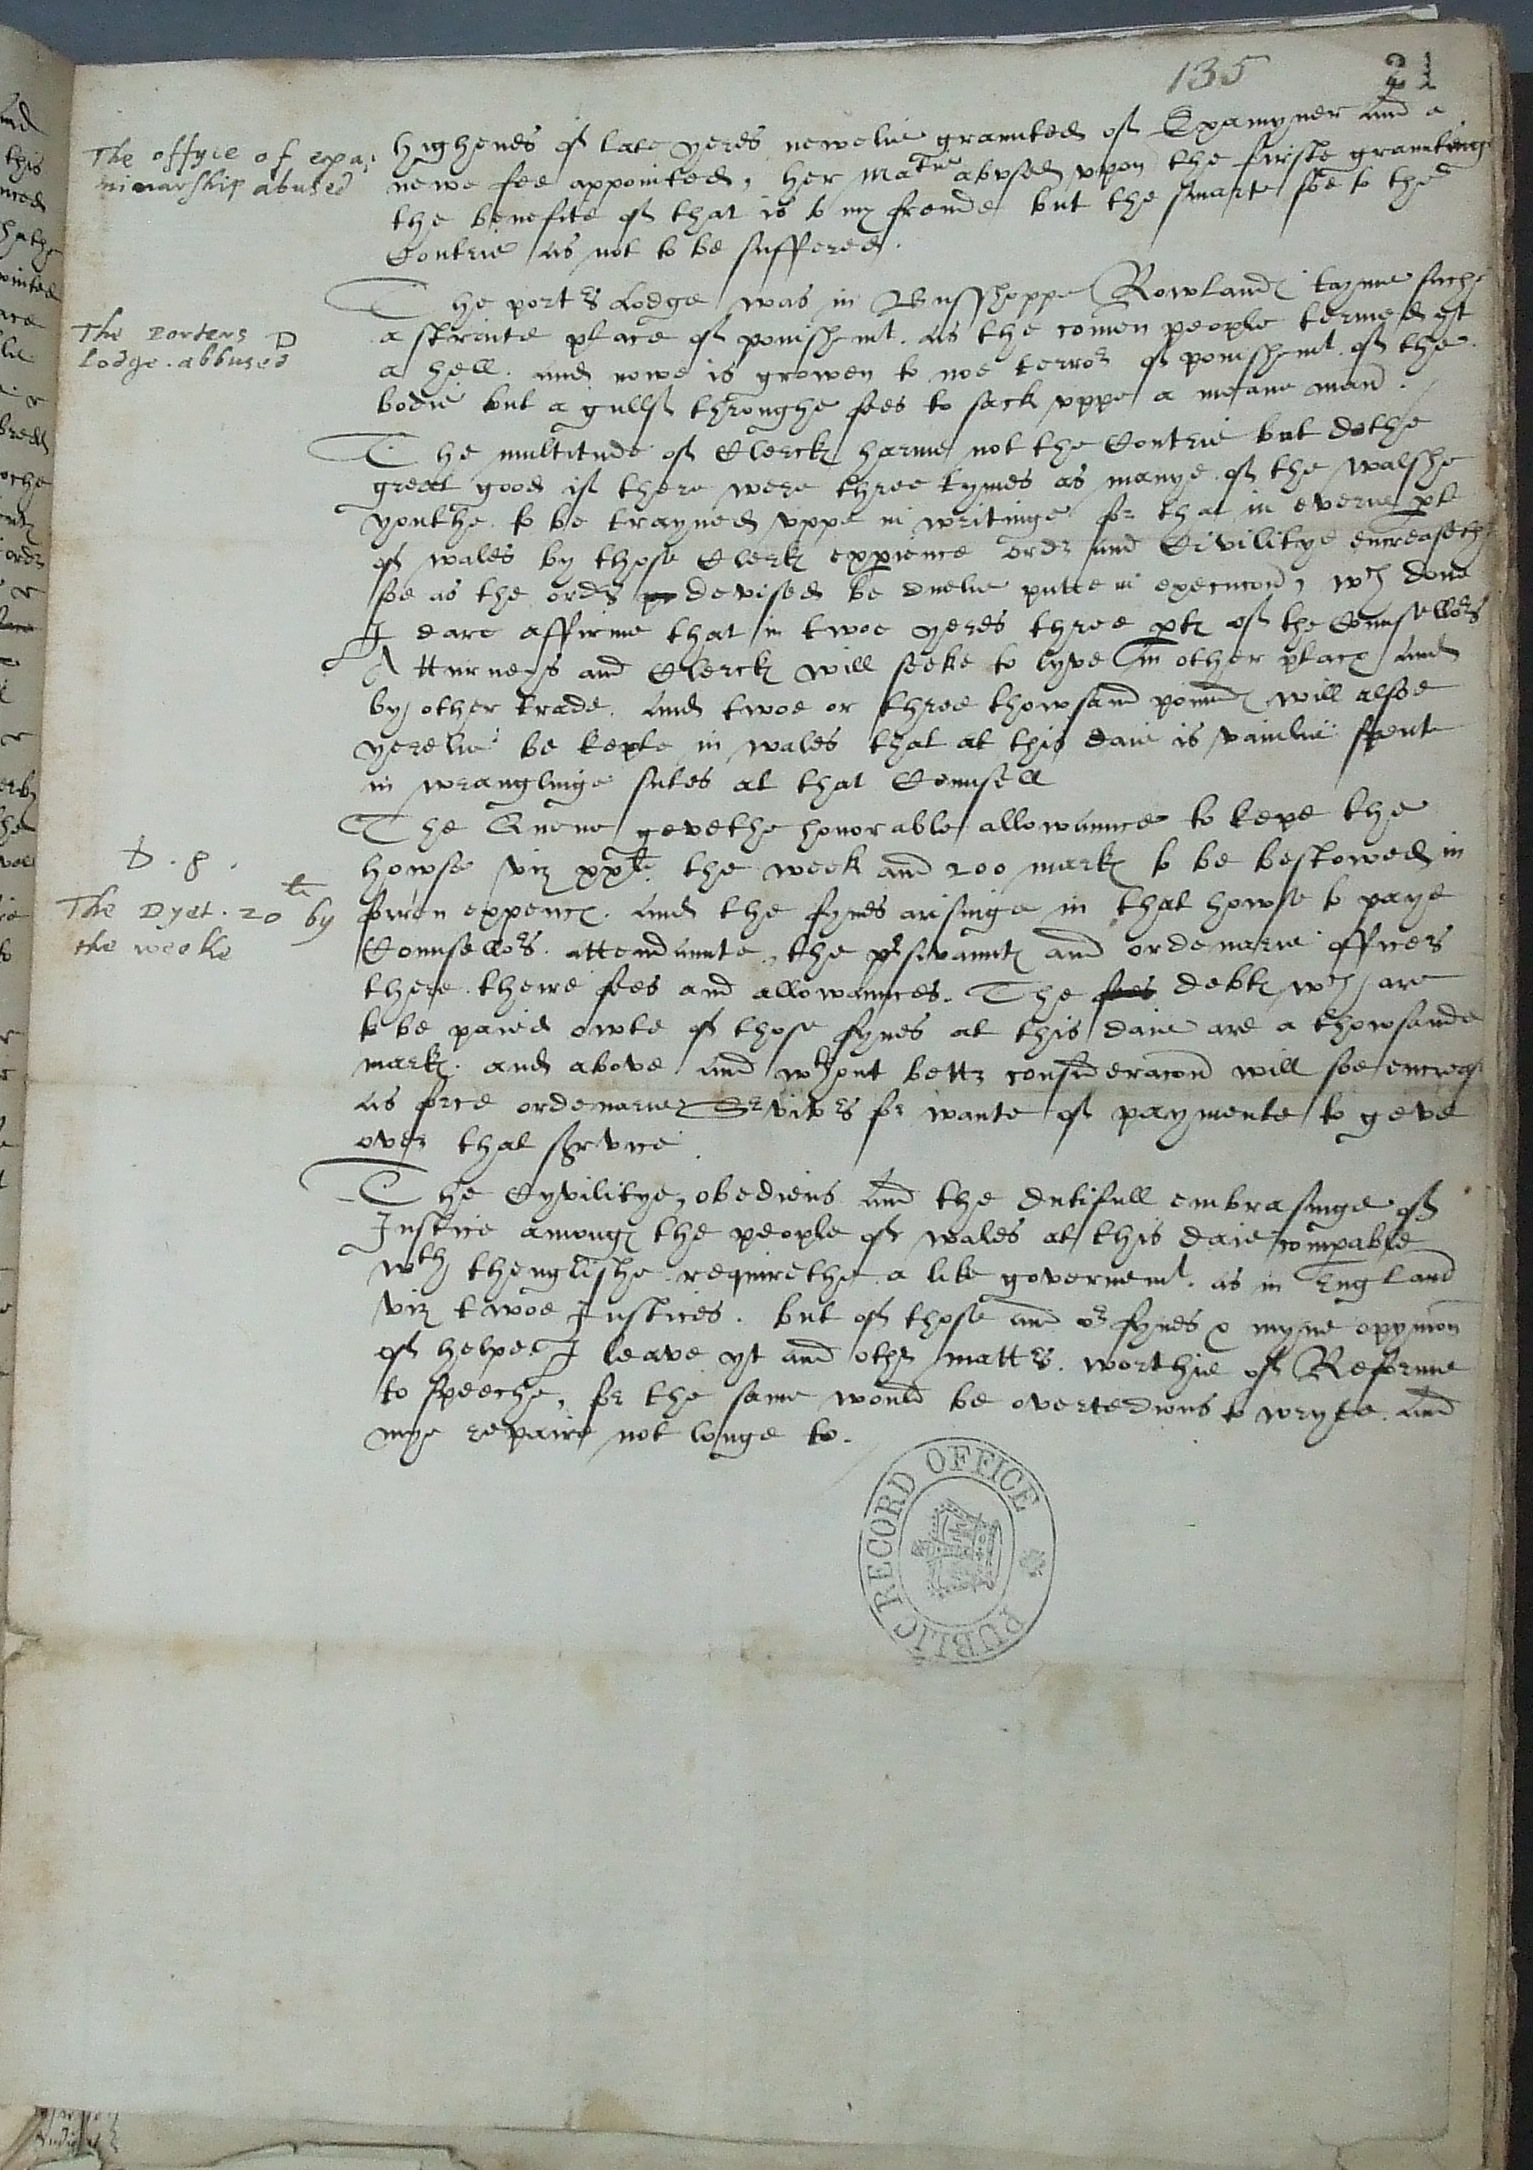 135 21
The offyce of exa-
minarship abused
highenes of late yeres newelie graunted of Examyner and a
newe fee appointed, her Matie abvsed vpon the furste grauntinge
the benefite of that is to my frende but the smarte soe to the
Contrie as not to be suffered.
The porters
Lodge. abbused
D
The porters Lodge was in Busshoppe Rowlandes tayme suche
a strente place of ponishemt. as the comen people termed yt
a hell. and nowe is growen to noe terror of ponishemt. of the
bodie but a gulff throughe fees to suck vppe a meane man.
The multitude of Clerckes harme not the Contrie but dothe
great good if there were three tymes as manye of the walshe
youthe to be trayned vppe in writinge for that in everie pte
of wales by those Clerkes experience order and Civilitye encreaseth
soe as the orders devised be duelie putte in execucion, wch done
I dare affirme that in twoe yeres three ptes of the Counsellors
Atturneys and Clerckes will seeke to lyve in other places and
by other trade. and twoe or three thowsand poundes will alsoe
yerelie be kepte in wales that at this daie is vainlie spente
in wranglinge sutes at that Counsell
D. 8.
The Dyet. 20 li by
the weeke
The Quene gevethe honorable allowaunce to kepe the
howse viz xxli the week and 200 markes to be bestowed in
forren expences. and the fynes arisinge in that howse to paye
Counsellors attendaunte, the pursevauntes and ordenarie officers
there. theire fees and allowaunces. The fees debtes wch are
to be paied owte of those fynes at this daie are a thowsande
markes. and above and wthout better consideracion will soe encreas
as force ordenarie Servitors for wante of paymente to geve
over that service
The Cyvilitye, obediens and the dutifull embrasinge of
Justice amonges the people of wales at this daie compable
wth thenglishe requirethe a like governemt. as in England
viz twoe Justices. but of those and or fynes & myne opynion
of helpe I leave yt and other matters. worthie of Reforme
to speeche, for the same would be overtedious to wryte and
mye repaire not longe to.
PUBLIC RECORD OFFICE